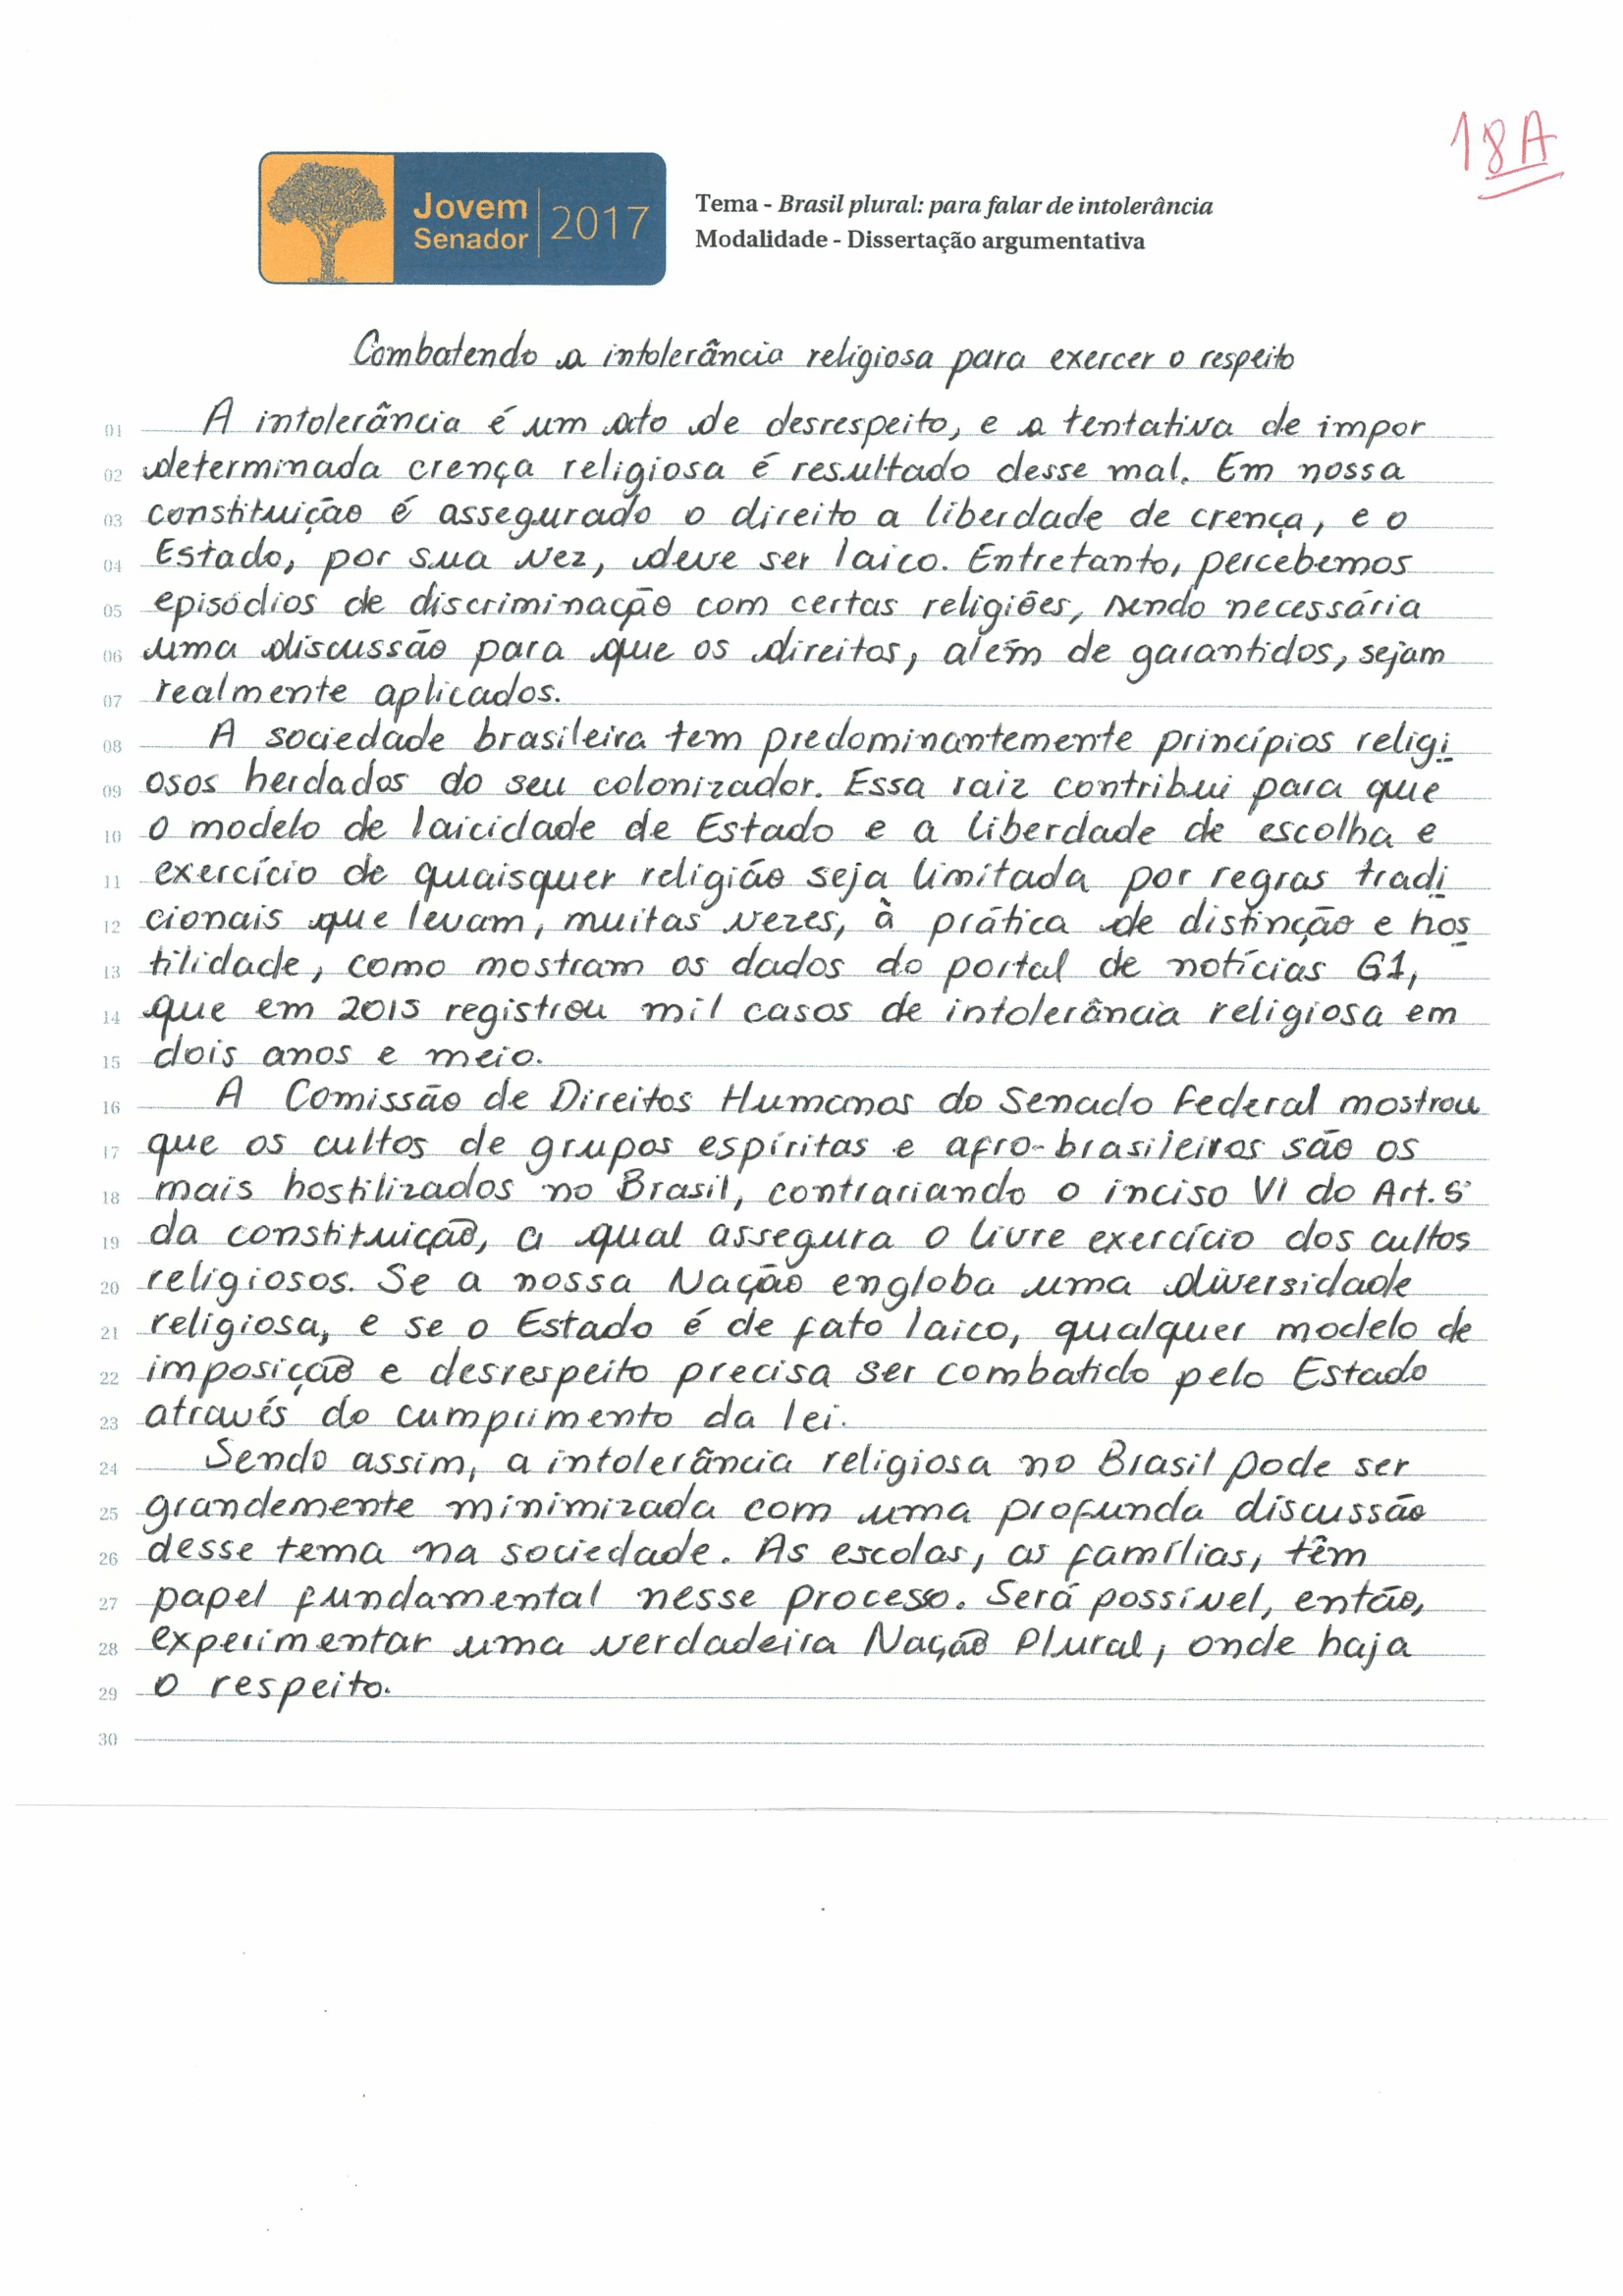 18A
Jovem
Senador
2017
Tema - Brasil plural: para falar de intolerância
Modalidade - Dissertação argumentativa
Combatendo a intolerância religiosa para exercer o respeito
01 A intolerância é um ato de desrespeito, e a tentativa de impor
02 determinada crença religiosa é resultado desse mal. Em nossa
03 constituição é assegurado o direito a liberdade de crença, e o
04 Estado, por sua vez, deve ser laico. Entretanto, percebemos
05 episódios de discriminação com certas religiões, sendo necessária
06 uma discussão para que os direitos, além de garantidos, sejam
07 realmente aplicados.
08 A sociedade brasileira tem predominantemente princípios religi
09 osos herdados do seu colonizador. Essa raiz contribui para que
10 o modelo de laicidade de Estado e a liberdade de escolha e
11 exercício de quaisquer religião seja limitada por regras tradi
12 cionais que levam, muitas vezes, à prática de distinção e hos
13 tilidade, como mostram os dados do portal de notícias G1,
14 que em 2015 registrou mil casos de intolerância religiosa em
15 dois anos e meio.
16 A Comissão de Direitos Humanos do Senado Federal mostrou
17 que os cultos de grupos espíritas e afro-brasileiros são os
18 mais hostilizados no Brasil, contrariando o inciso VI do Art. 5°
19 da constituição, a qual assegura o livre exercício dos cultos
20 religiosos. Se a nossa Nação engloba uma diversidade
21 religiosa, e se o Estado é de fato laico, qualquer modelo de
22 imposição e desrespeito precisa ser combatido pelo Estado
23 através do cumprimento da lei.
24 Sendo assim, a intolerância religiosa no Brasil pode ser
25 grandemente minimizada com uma profunda discussão
26 desse tema na sociedade. As escolas, as famílias, têm
27 papel fundamental nesse processo. Será possível, então,
28 experimentar uma verdadeira Nação Plural, onde haja
29 o respeito.
30